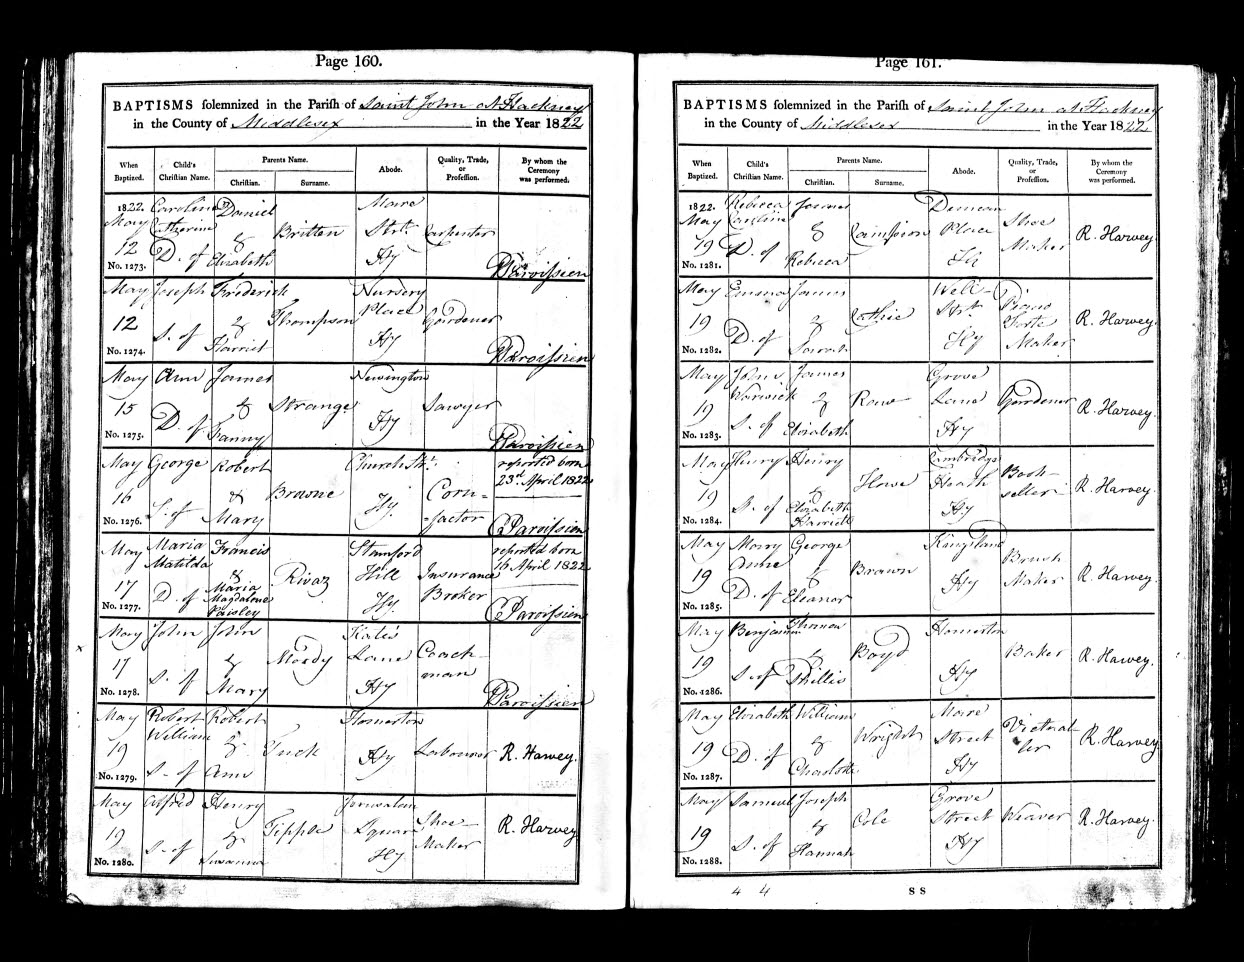 Page 160.
BAPTISMS solemnized in the Parish of Saint John at Hackney
in the County of Middlesex in the Year 1822
When Baptized. Child's Christian Name. Parents Name. Christian. Surname. Abode. Quality, Trade, or Profession. By whom the Ceremony was performed.
1822. Caroline Daniel Mare
May Catherine & Britten Strt Carpenter
12 D. of Elizabeth Hy
No. 1273. Paroissien
May Joseph Frederick Nursery
12 & Thompson Place Gardener
S. of Harriet Hy
No. 1274. Paroissien
May Ann James Newington
15 & Strange Sawyer
D. of Fanny Hy
No. 1275. Paroissien
May George Robert Church Strt. reported born
23rd April 1822
16 & Browne Hy. Corn-
S. of Mary factor
No. 1276. Paroissien
May Maria Francis Stamford reported born
Matilda & Rivaz Hill Insurance 16 April 1822
17 D. of Maria Hy. Broker
Magdalene
No. 1277. Paisley Paroissien
May John John Kates
17 & Moody Lane Coach-
S. of Mary Hy man
No. 1278. Paroissien
May Robert Robert Homerton
William &
19 Tuck Hy Labourer R. Harvey.
S. of Ann
No. 1279.
May Alfred Henry Jerusalem
19 & Tipple Square Shoe- R. Harvey
S. of Susanna Hy Maker
No. 1280.
Page 161.
BAPTISMS solemnized in the Parish of Saint John at Hackney
in the County of Middlesex in the Year 1822
When Baptized. Child's Christian Name. Parents Name. Christian. Surname. Abode. Quality, Trade, or Profession. By whom the Ceremony was performed.
1822. Rebecca James Duncan
May Caroline & Campion Place Shoe R. Harvey.
19 D. of Rebecca Hy Maker
No. 1281.
May Emma James Well Piano
19 & Strt Forte R. Harvey.
D. of Sarah Hy Maker
No. 1282.
May John James Grove
Warwick & Rowe Lane Gardener R. Harvey.
19 S. of Elizabeth Hy
No. 1283.
May Henry Henry Cambridge
19 & Howe Heath Book- R. Harvey.
S. of Elizabeth Hy seller
No. 1284. Harriett
May Mary George Kingsland
Anne & Brown Brush R. Harvey.
19 D. of Eleanor Hy Maker
No. 1285.
May Benjamin Thomas Homerton
19 & Boyd Baker R. Harvey.
S. of Phillis Hy
No. 1286.
May Elizabeth William Mare
19 & Wright Street Victual- R. Harvey.
D. of Charlotte Hy ler
No. 1287.
May Samuel Joseph Grove
19 & Cole Street Weaver R. Harvey.
S. of Hannah Hy
No. 1288.
4 4 S S